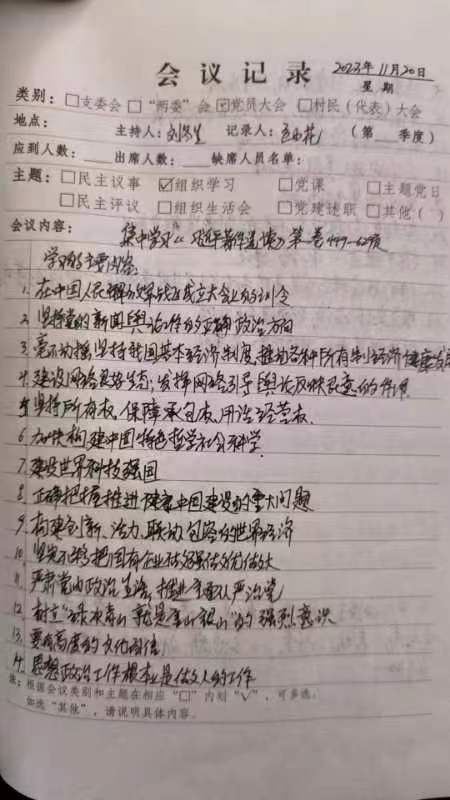 会议记录 2023年11月20日
星期
类别：□支委会 □“两委”会 ☑党员大会 □村民（代表）大会
地点： 主持人：刘 生 记录人： （第 季度）
应到人数： 出席人数： 缺席人员名单：
主题：□民主议事 ☑组织学习 □党课 □主题党日
□民主评议 □组织生活会 □党建述职 □其他（ ）
会议内容： 集中学习《习近平著作选读》第一卷
学习的主要内容：
1. 在中国人民解放军战区成立大会上的训令
2. 坚持党的新闻舆论工作的正确政治方向
3. 毫不动摇坚持我国基本经济制度，推动各种所有制经济健康发展
4. 建设网络良好生态，发挥网络引导舆论反映民意的作用
5. 坚持所有权、保障承包权、用活经营权
6. 加快构建中国特色哲学社会科学
7. 建设世界科技强国
8. 正确把握推进健康中国建设的重大问题
9. 构建创新、活力、联动、包容的世界经济
10. 坚定不移把国有企业做强做优做大
11. 严肃党内政治生活，推进全面从严治党
12. 树立“绿水青山就是金山银山”的强烈意识
13. 要有高度的文化自信
14. 思想政治工作根本上是做人的工作
注：根据会议类别和主题在相应“□”内划“√”，可多选。
如选“其他”，请说明具体内容。